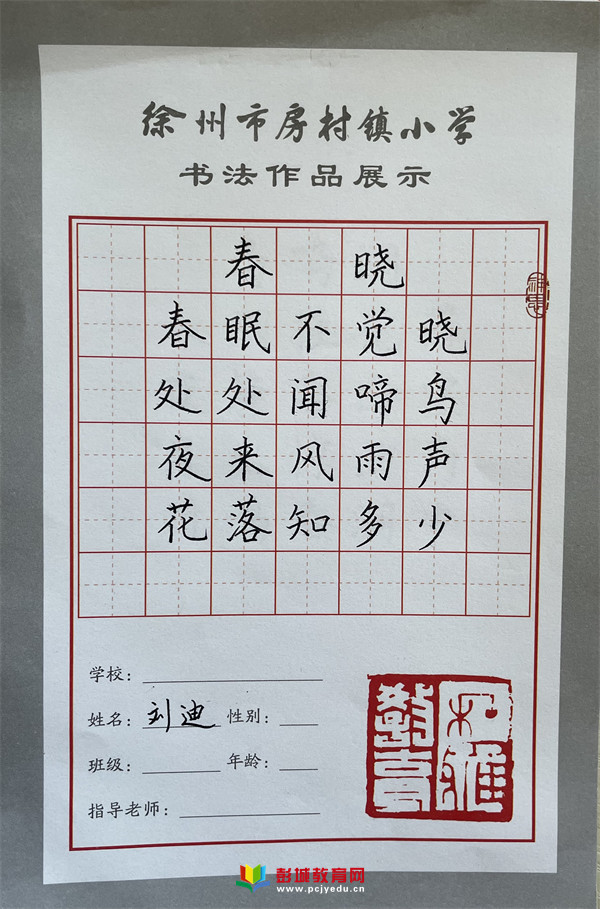 徐州市房村镇小学
书法作品展示
春晓
春眠不觉晓
处处闻啼鸟
夜来风雨声
花落知多少
学校:
姓名: 刘迪 性别:
班级: 年龄:
指导老师:
彭城教育网
www.pcjyedu.cn